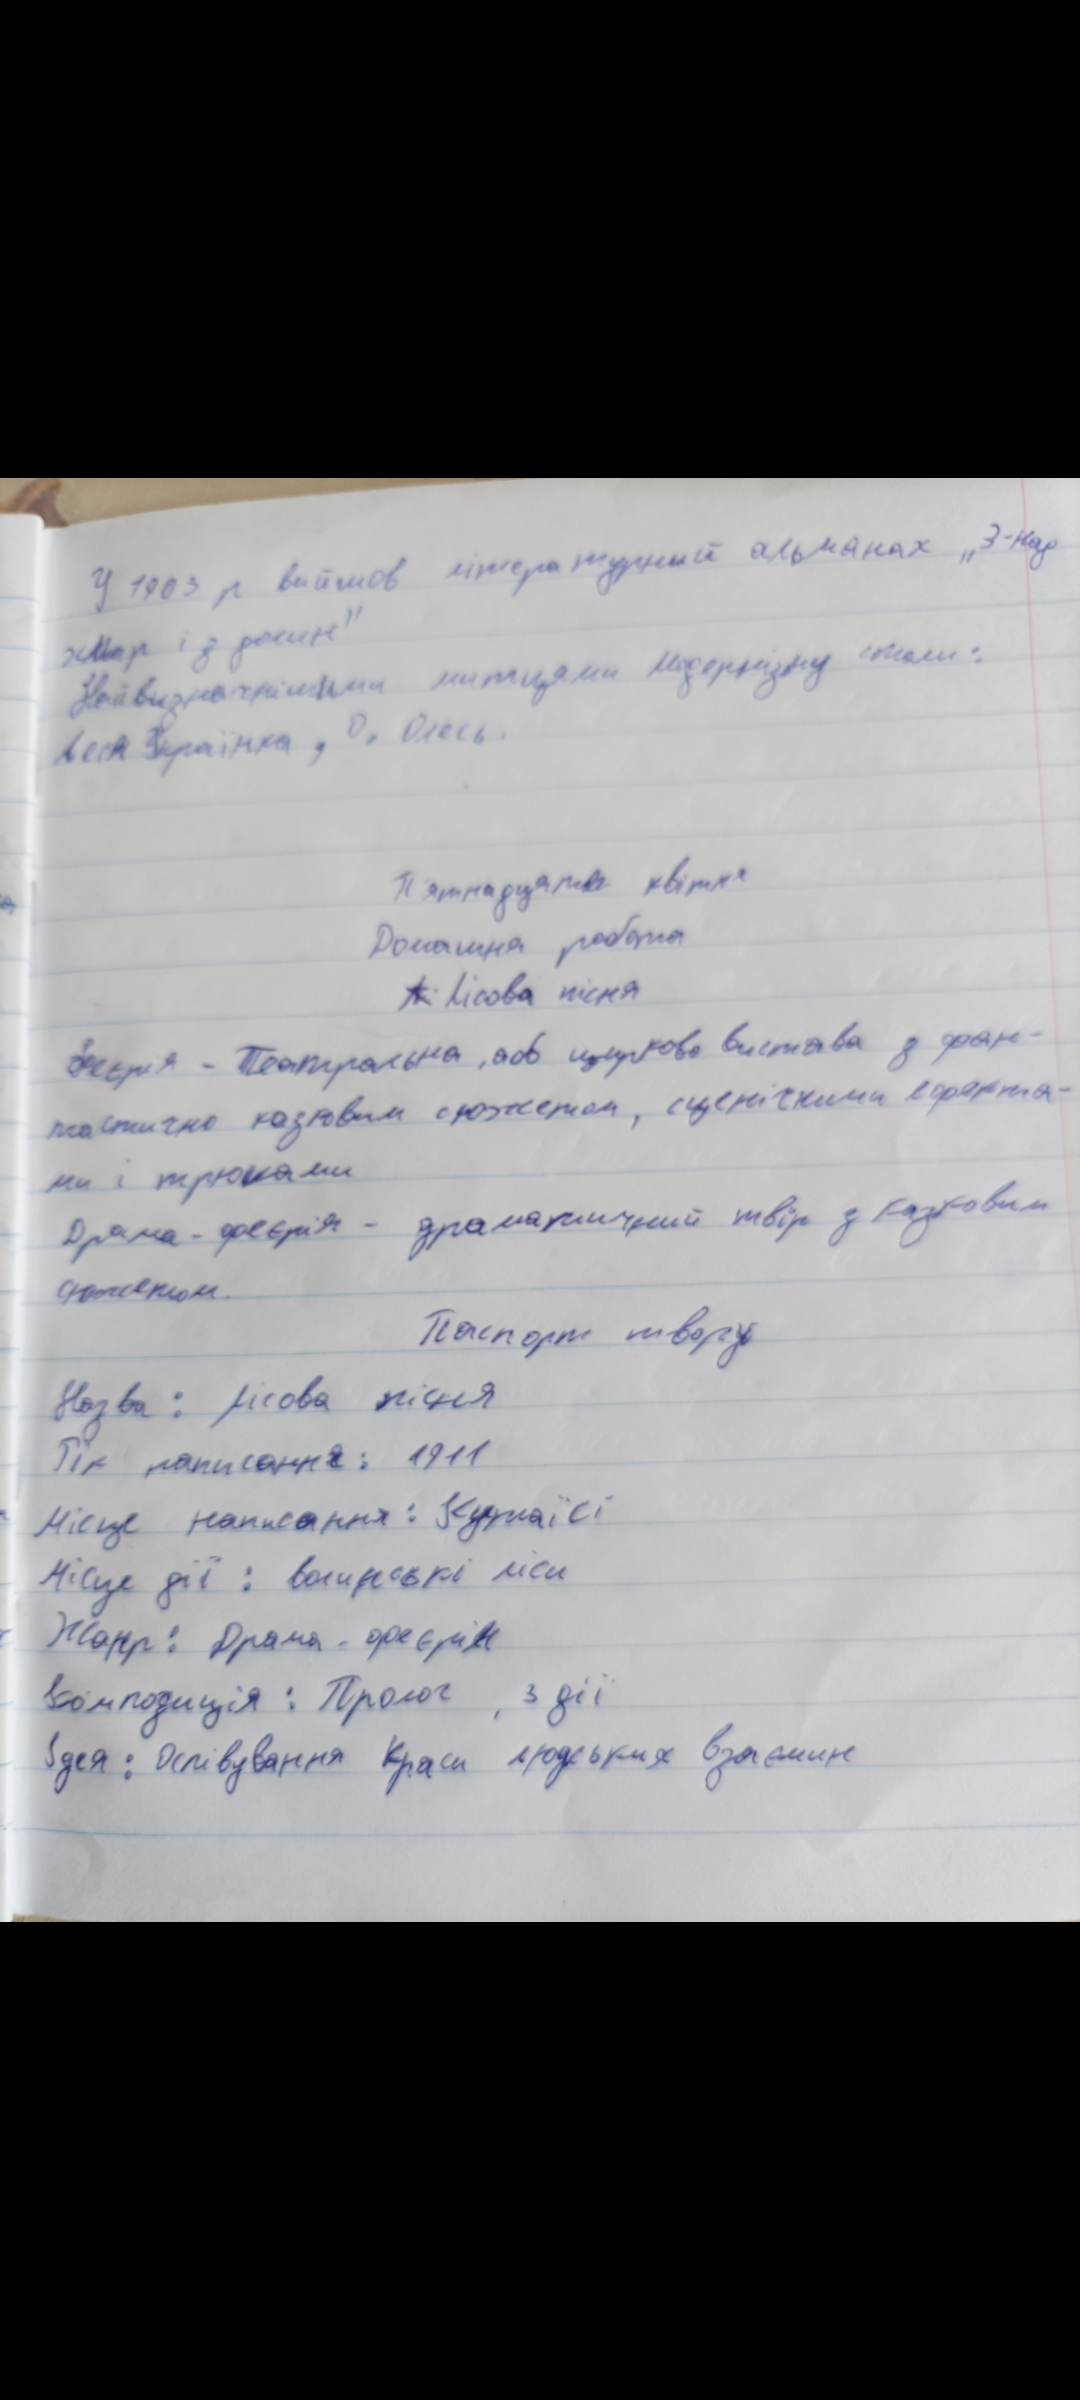 У 1903 р вийшов літературний альманах „З-над
хмар і з долин"
Найвизначнішими митцями модернізму стали:
Леся Українка, О. Олесь.
П'ятнадцяте квітня
Домашня робота
Лісова пісня
Феєрія - Театральна, або циркова вистава з фан-
тастично казковим сюжетом, сценічними ефекта-
ми і трюками
Драма-феєрія - драматичний твір з казковим
сюжетом.
Паспорт твору
Назва: Лісова пісня
Рік написання: 1911
Місце написання: Кутаїсі
Місце дії: волинські ліси
Жанр: Драма-феєрія
Композиція: Пролог, 3 дії
Ідея: Оспівування краси людських взаємин